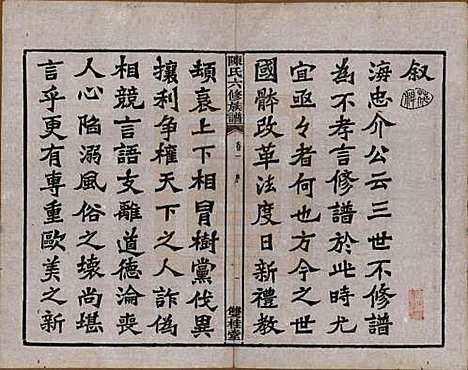 叙
海忠介公云三世不修譜
為不孝言修譜於此時尤
宜亟々者何也方今之世
國體改革法度日新禮教
陳氏六修族譜
卷一
序
雙桂堂
頹衰上下相冒樹黨伐異
攘利爭權天下之人詐偽
相競言語支離道德淪喪
人心陷溺風俗之壞尚堪
言乎更有專重歐美之新